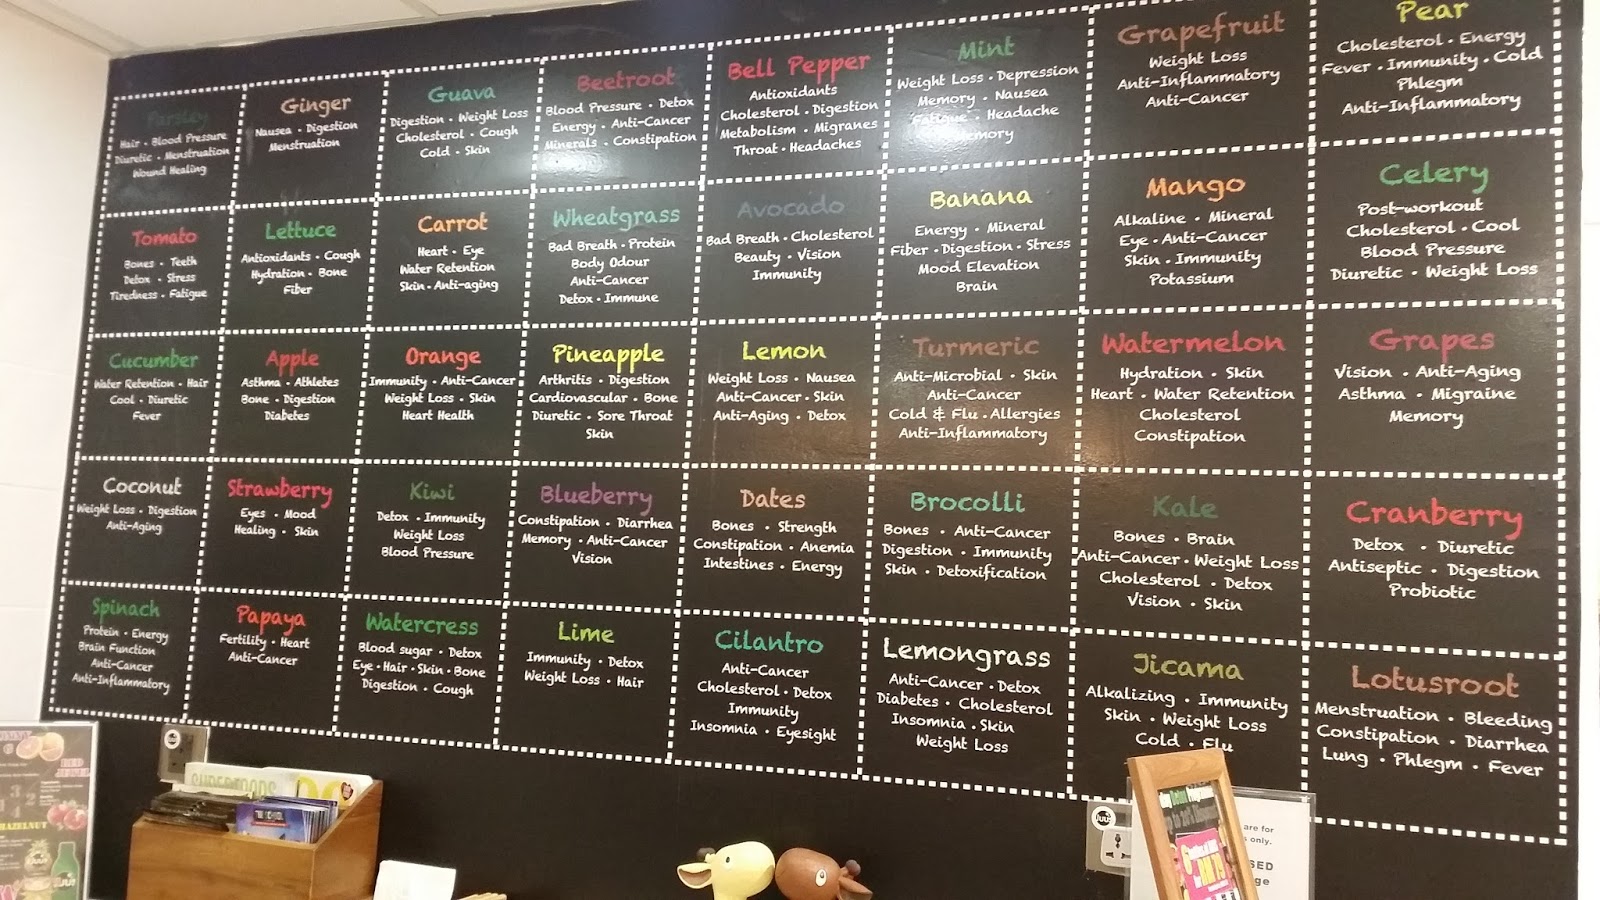 Parsley
Hair • Blood Pressure
Diuretic • Menstruation
Wound Healing
Ginger
Nausea • Digestion
Menstruation
Guava
Digestion • Weight Loss
Cholesterol • Cough
Cold • Skin
Beetroot
Blood Pressure • Detox
Energy • Anti-Cancer
Minerals • Constipation
Bell Pepper
Antioxidants
Cholesterol • Digestion
Metabolism • Migranes
Throat • Headaches
Mint
Weight Loss • Depression
Memory • Nausea
Fatigue • Headache
Memory
Grapefruit
Weight Loss
Anti-Inflammatory
Anti-Cancer
Pear
Cholesterol • Energy
Fever • Immunity • Cold
Phlegm
Anti-Inflammatory
Tomato
Bones • Teeth
Detox • Stress
Tiredness • Fatigue
Lettuce
Antioxidants • Cough
Hydration • Bone
Fiber
Carrot
Heart • Eye
Water Retention
Skin • Anti-aging
Wheatgrass
Bad Breath • Protein
Body Odour
Anti-Cancer
Detox • Immune
Avocado
Bad Breath • Cholesterol
Beauty • Vision
Immunity
Banana
Energy • Mineral
Fiber • Digestion • Stress
Mood Elevation
Brain
Mango
Alkaline • Mineral
Eye • Anti-Cancer
Skin • Immunity
Potassium
Celery
Post-workout
Cholesterol • Cool
Blood Pressure
Diuretic • Weight Loss
Cucumber
Water Retention • Hair
Cool • Diuretic
Fever
Apple
Asthma • Athletes
Bone • Digestion
Diabetes
Orange
Immunity • Anti-Cancer
Weight Loss • Skin
Heart Health
Pineapple
Arthritis • Digestion
Cardiovascular • Bone
Diuretic • Sore Throat
Skin
Lemon
Weight Loss • Nausea
Anti-Cancer • Skin
Anti-Aging • Detox
Turmeric
Anti-Microbial • Skin
Anti-Cancer
Cold & Flu • Allergies
Anti-Inflammatory
Watermelon
Hydration • Skin
Heart • Water Retention
Cholesterol
Constipation
Grapes
Vision • Anti-Aging
Asthma • Migraine
Memory
Coconut
Weight Loss • Digestion
Anti-Aging
Strawberry
Eyes • Mood
Healing • Skin
Kiwi
Detox • Immunity
Weight Loss
Blood Pressure
Blueberry
Constipation • Diarrhea
Memory • Anti-Cancer
Vision
Dates
Bones • Strength
Constipation • Anemia
Intestines • Energy
Brocolli
Bones • Anti-Cancer
Digestion • Immunity
Skin • Detoxification
Kale
Bones • Brain
Anti-Cancer • Weight Loss
Cholesterol • Detox
Vision • Skin
Cranberry
Detox • Diuretic
Antiseptic • Digestion
Probiotic
Spinach
Protein • Energy
Brain Function
Anti-Cancer
Anti-Inflammatory
Papaya
Fertility • Heart
Anti-Cancer
Watercress
Blood sugar • Detox
Eye • Hair • Skin • Bone
Digestion • Cough
Lime
Immunity • Detox
Weight Loss • Hair
Cilantro
Anti-Cancer
Cholesterol • Detox
Immunity
Insomnia • Eyesight
Lemongrass
Anti-Cancer • Detox
Diabetes • Cholesterol
Insomnia • Skin
Weight Loss
Jicama
Alkalizing • Immunity
Skin • Weight Loss
Cold • Flu
Lotusroot
Menstruation • Bleeding
Constipation • Diarrhea
Lung • Phlegm • Fever
HAZELNUT
are for
only.